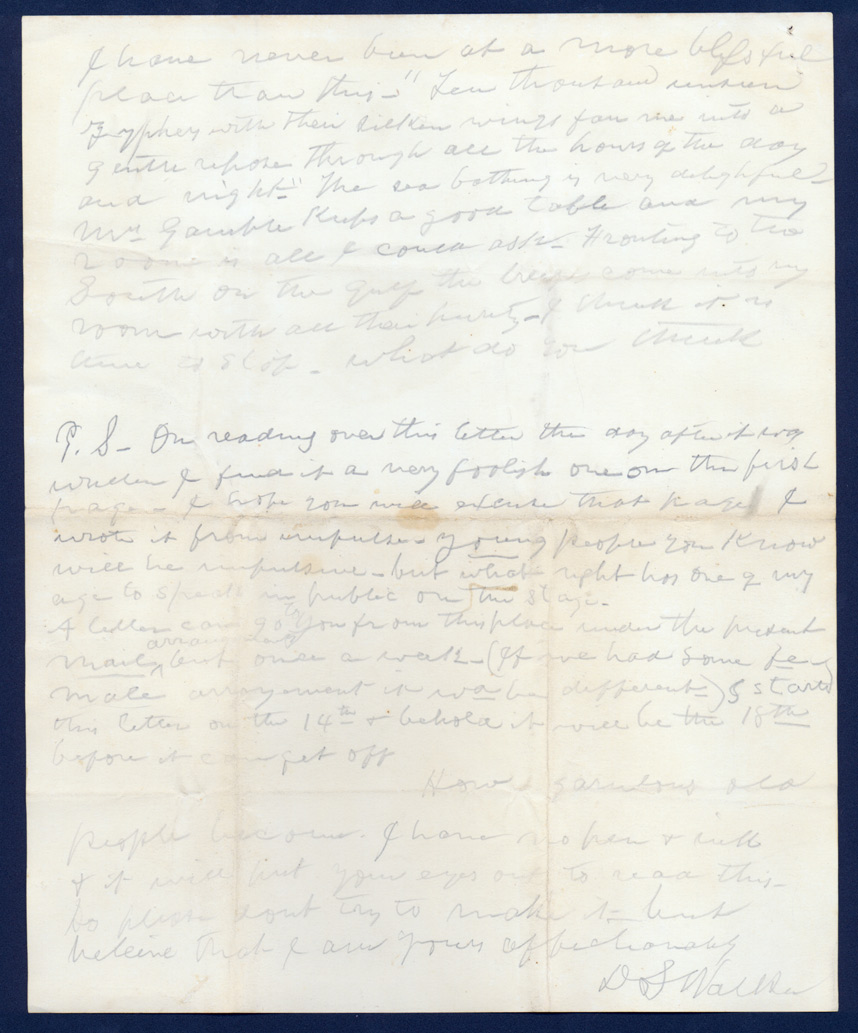 I have never been at a more blissful
place than this - "Ten thousand unseen
Zyphers with their silken wings fan me into a
gentle repose through all the hours of the day
and night." The sea bathing is very delightful -
Mrs. Gamble Keeps a good table and my
room is all I could ask - Fronting to the
South on the gulf the breezes come into my
room with all their purity - I think it is
time to stop - what do you think
P. S - On reading over this letter the day after it was
written I find it a very foolish one on the first
page - I hope you will excuse that page I
wrote it from impulse - young people you Know
will be impulsive - but what right has one of my
age to speak in public on the stage -
A letter can go to you from this place under the present
mail arrangement but once a week - (If we had some fe-
male arrangement it wd be different -) I started
this letter on the 14th & behold it will be the 18th
before it can get off
How garulous old
people become. I have no pen & ink
& it will put your eyes out to read this -
So please dont try to make it - but
believe that I am yours affectionately
D S Walker